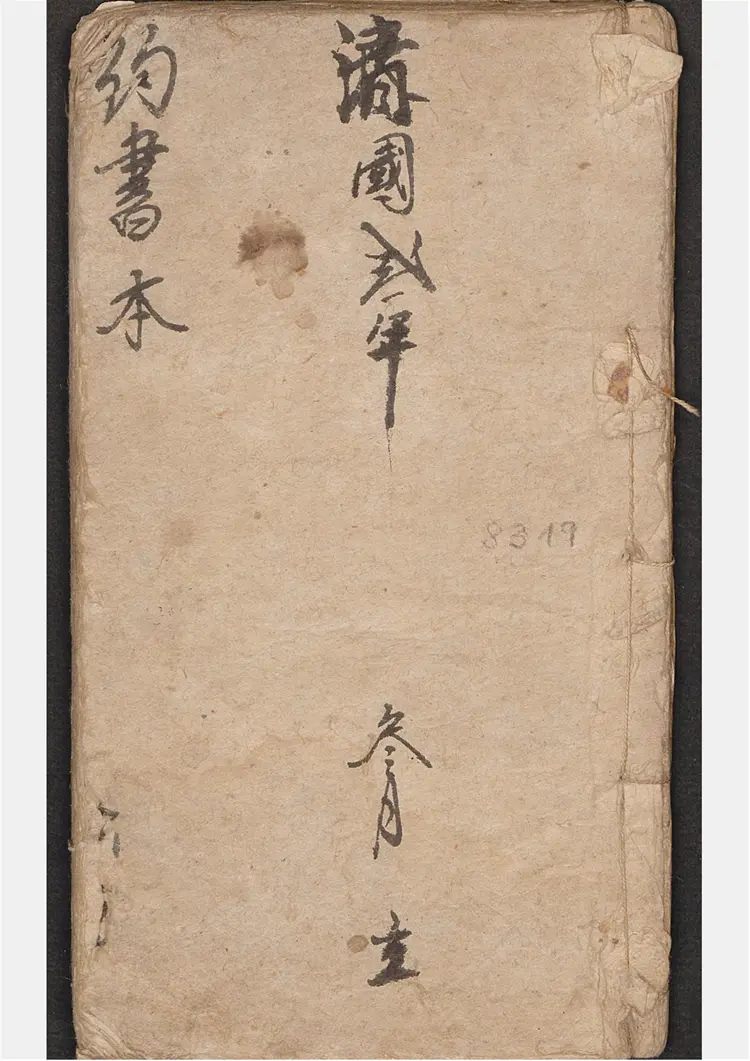 8319
濟國弍年 叁月 立
約書本